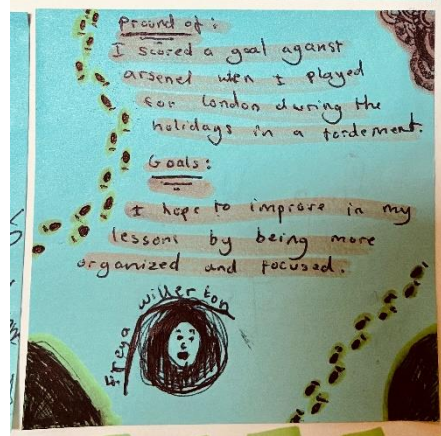 Pround of:
I scored a goal aganst
arsenel wen I played
for london during the
holidays in a tordement.
Goals:
I hope to improve in my
lessons by being more
organized and focused.
Freya willerton